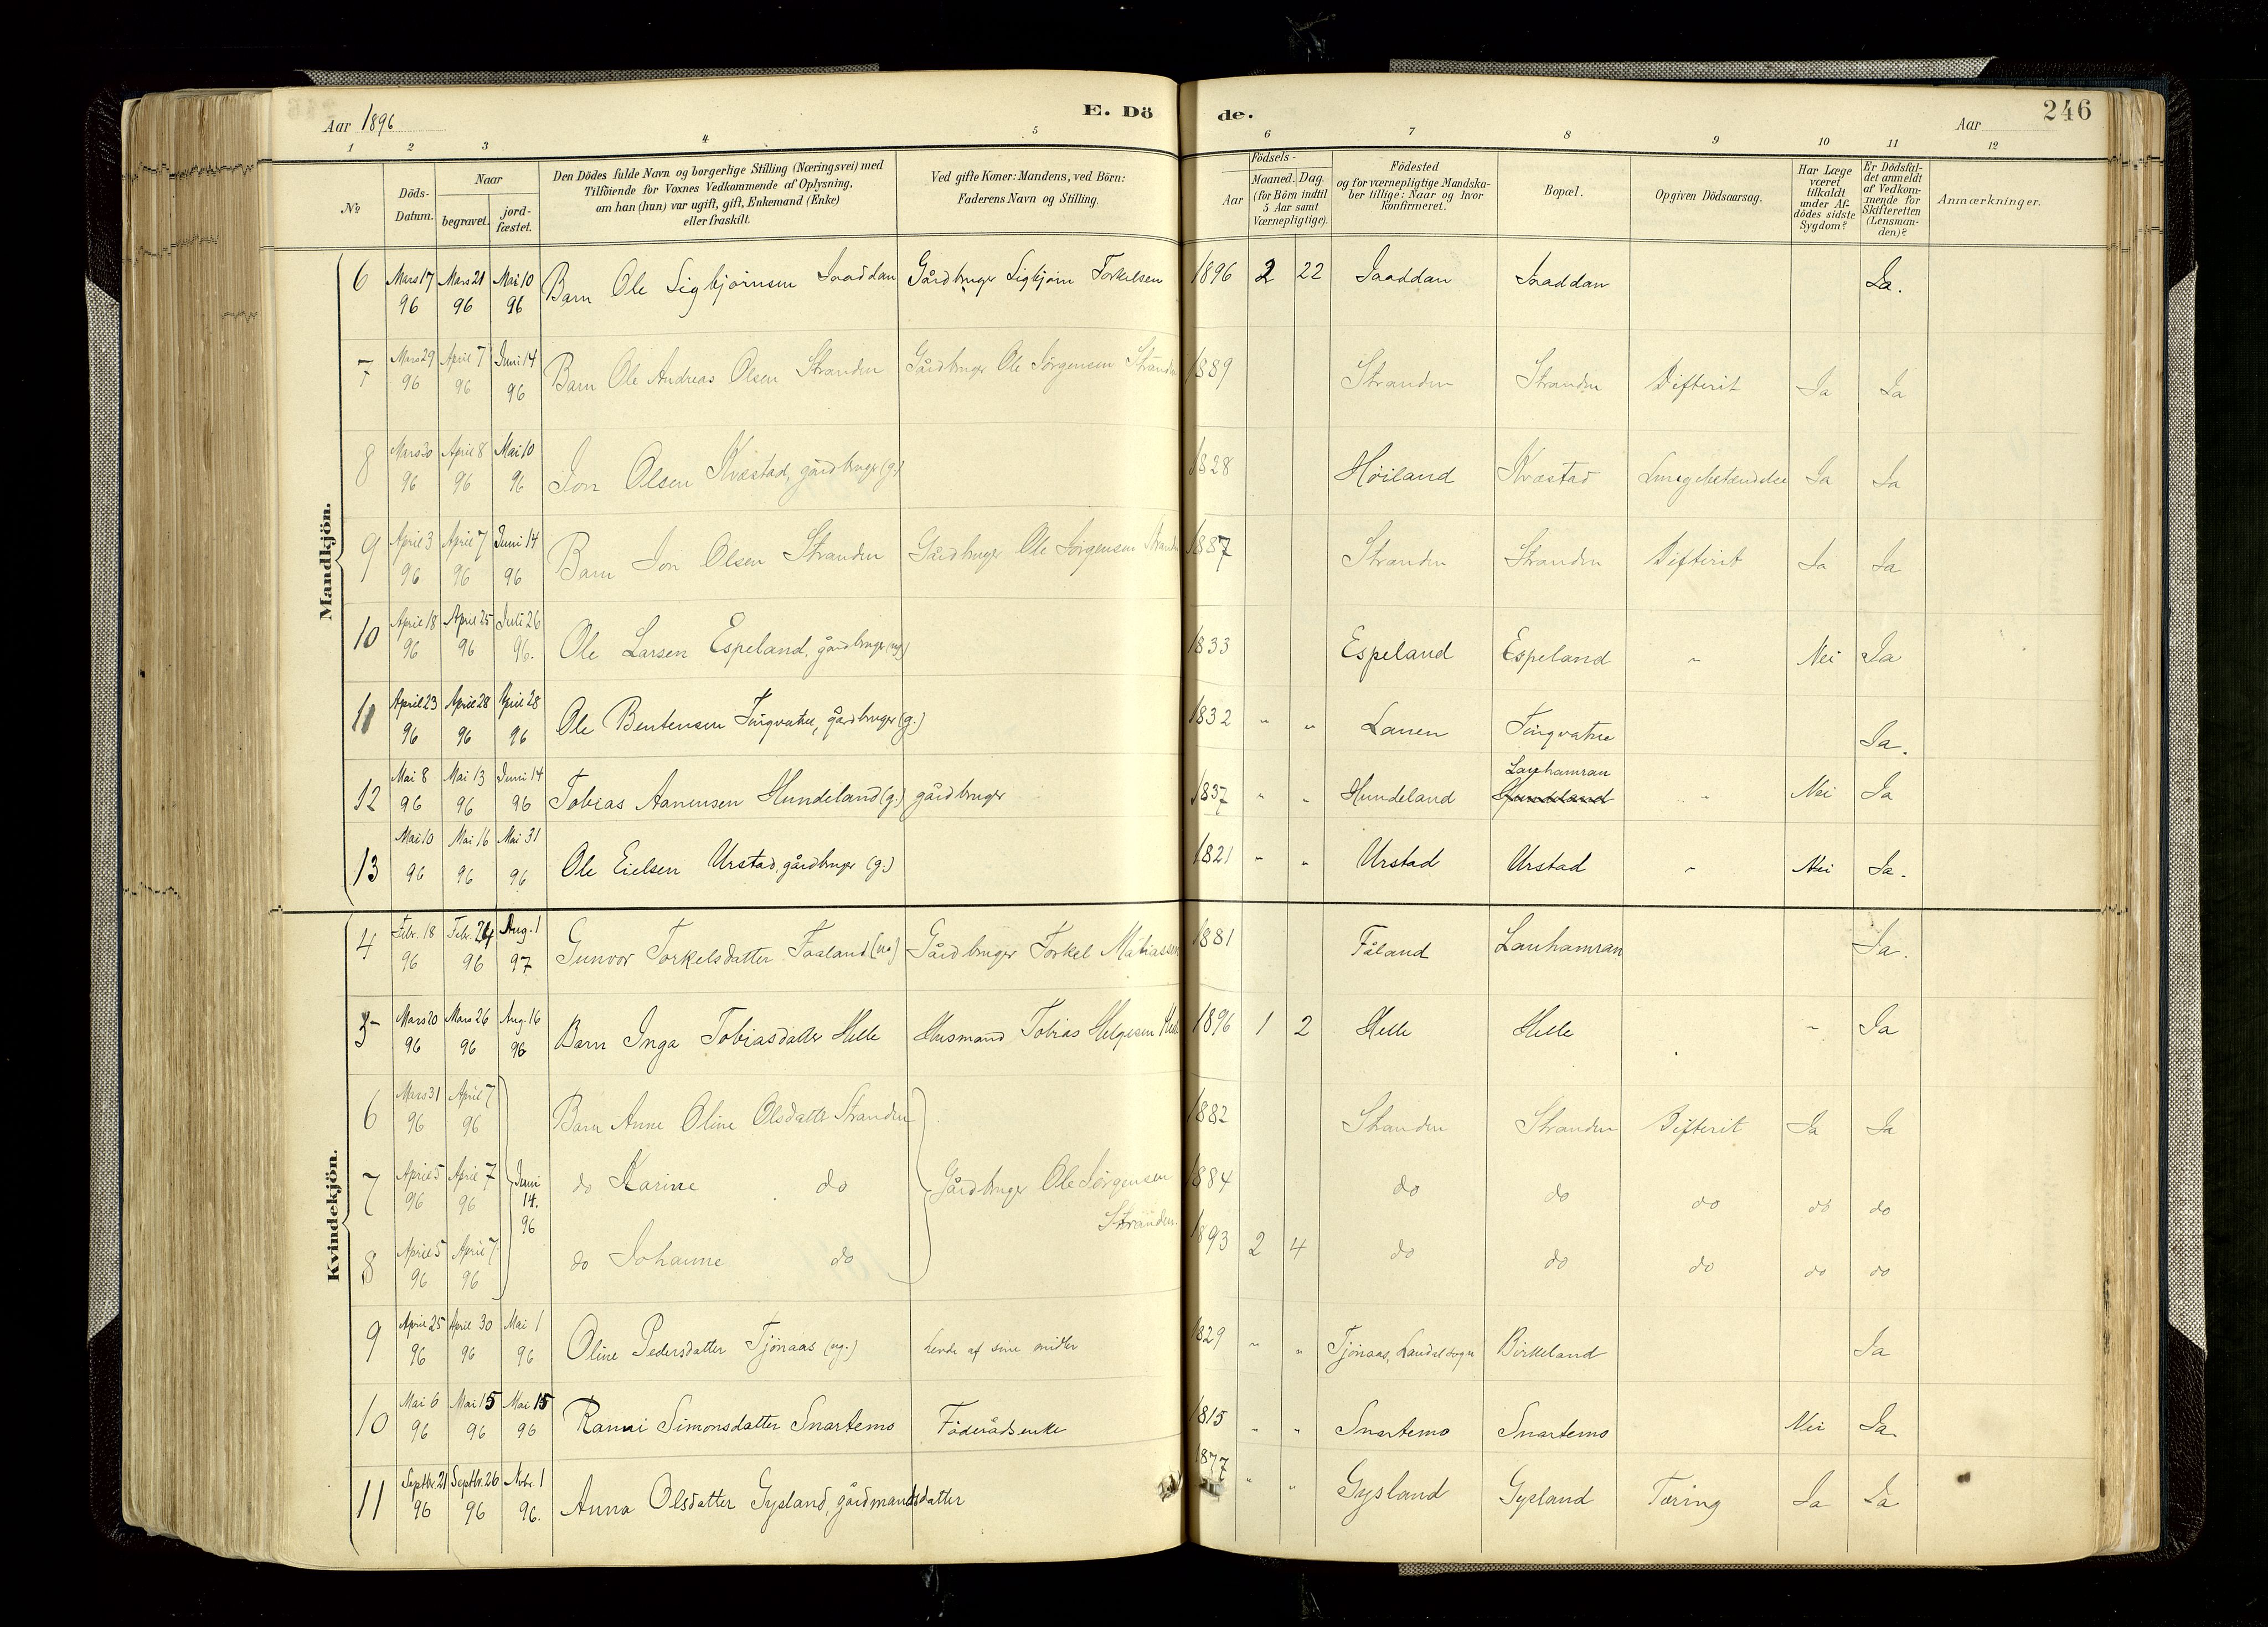 Aar 1896
E. Dö
de.
Aar
246
1 2 3 4 5 6 7 8 9 10 11 12
№
Döds-
Datum.
Naar
begravet.
jord-
fæstet.
Den Dödes fulde Navn og borgerlige Stilling (Næringsvei) med
Tilföiende for Voxnes Vedkommende af Oplysning,
om han (hun) var ugift, gift, Enkemand (Enke)
eller fraskilt.
Ved gifte Koner: Mandens, ved Börn:
Faderens Navn og Stilling.
Aar
Födsels-
Maaned. Dag.
(for Börn indtil
5 Aar samt
Værnepligtige).
Födested
og for værnepligtige Mandska-
ber tillige: Naar og hvor
konfirmeret.
Bopæl.
Opgiven Dödsaarsag.
Har Læge
været
tilkaldt
under Af-
dödes sidste
Sygdom?
Er Dödsfal-
det anmeldt
af Vedkom-
mende for
Skifteretten
(Lensman-
den)?
Anmærkninger.
Mandkjön.
6 Mars 17 96 Mars 21 96 Mai 10 96 Barn Ole Sigbjörnsen Saaddan Gårdbruger Sigbjörn Torkelsen 1896 2 22 Saaddan Saaddan Ja.
7 Mars 29 96 April 7 96 Juni 14 96 Barn Ole Andreas Olsen Stranden Gårdbruger Ole Jörgensen Stranden 1889 Stranden Stranden Difterit Ja Ja
8 Mars 30 96 April 8 96 Mai 10 96 Jon Olsen Kvæstad, gårdbruger (g.) 1828 Höiland Kvæstad Lungebetændelse Ja Ja
9 April 3 96 April 7 96 Juni 14 96 Barn Jon Olsen Stranden Gårdbruger Ole Jörgensen Stranden 1887 Stranden Stranden Difterit Ja Ja
10 April 18 96 April 25 96 Juli 26 96. Ole Larsen Espeland, gårdbruger (ug.) 1833 Espeland Espeland " Nei Ja
11 April 23 96 April 28 96 April 28 96 Ole Bentensen Tingvatne, gårdbruger (g.) 1832 " " Lauen Tingvatne Ja.
12 Mai 8 96 Mai 13 96 Juni 14 96 Tobias Aanensen Hundeland (g.) gårdbruger 1837 " " Hundeland Lauhamran Hundeland " Nei Ja
13 Mai 10 96 Mai 16 96 Mai 31 96 Ole Eielsen Urstad, gårdbruger (g.) 1821 " " Urstad Urstad " Nei Ja.
Kvindekjön.
4 Febr. 18 96 Febr. 24 96 Aug. 1 97 Gunvor Torkelsdatter Faaland (ug.) Gårdbruger Torkel Matiassen 1881 Fåland Lauhamran Ja.
5 Mars 20 96 Mars 26 96 Aug. 16 96 Barn Inga Tobiasdatter Helle Husmand Tobias Helgesen Helle 1896 1 2 Helle Helle " Ja
6 Mars 31 96 April 7 96 Barn Anne Oline Olsdatter Stranden 1882 Stranden Stranden Difterit Ja Ja
7 April 5 96 April 7 96 Juni 14. 96 do Karine do Gårdbruger Ole Jörgensen Stranden. 1884 do do do do do
8 April 5 96 April 7 96 do Johanne do 1893 2 4 do do do do do
9 April 25 96 April 30 96 Mai 1 96 Oline Pedersdatter Tjönaas (ug.) levde af sine midler 1829 " " Tjönaas, Laudal sogn Birkeland Ja
10 Mai 6 96 Mai 15 96 Mai 15 96 Ranni Simonsdatter Snartemo Föderådsenke 1815 " " Snartemo Snartemo Nei Ja
11 Septbr. 21 96 Septbr. 26 96 Novbr. 1 96. Anna Olsdatter Gysland, gårdmandsdatter 1877 " " Gysland Gysland Tæring Ja Ja